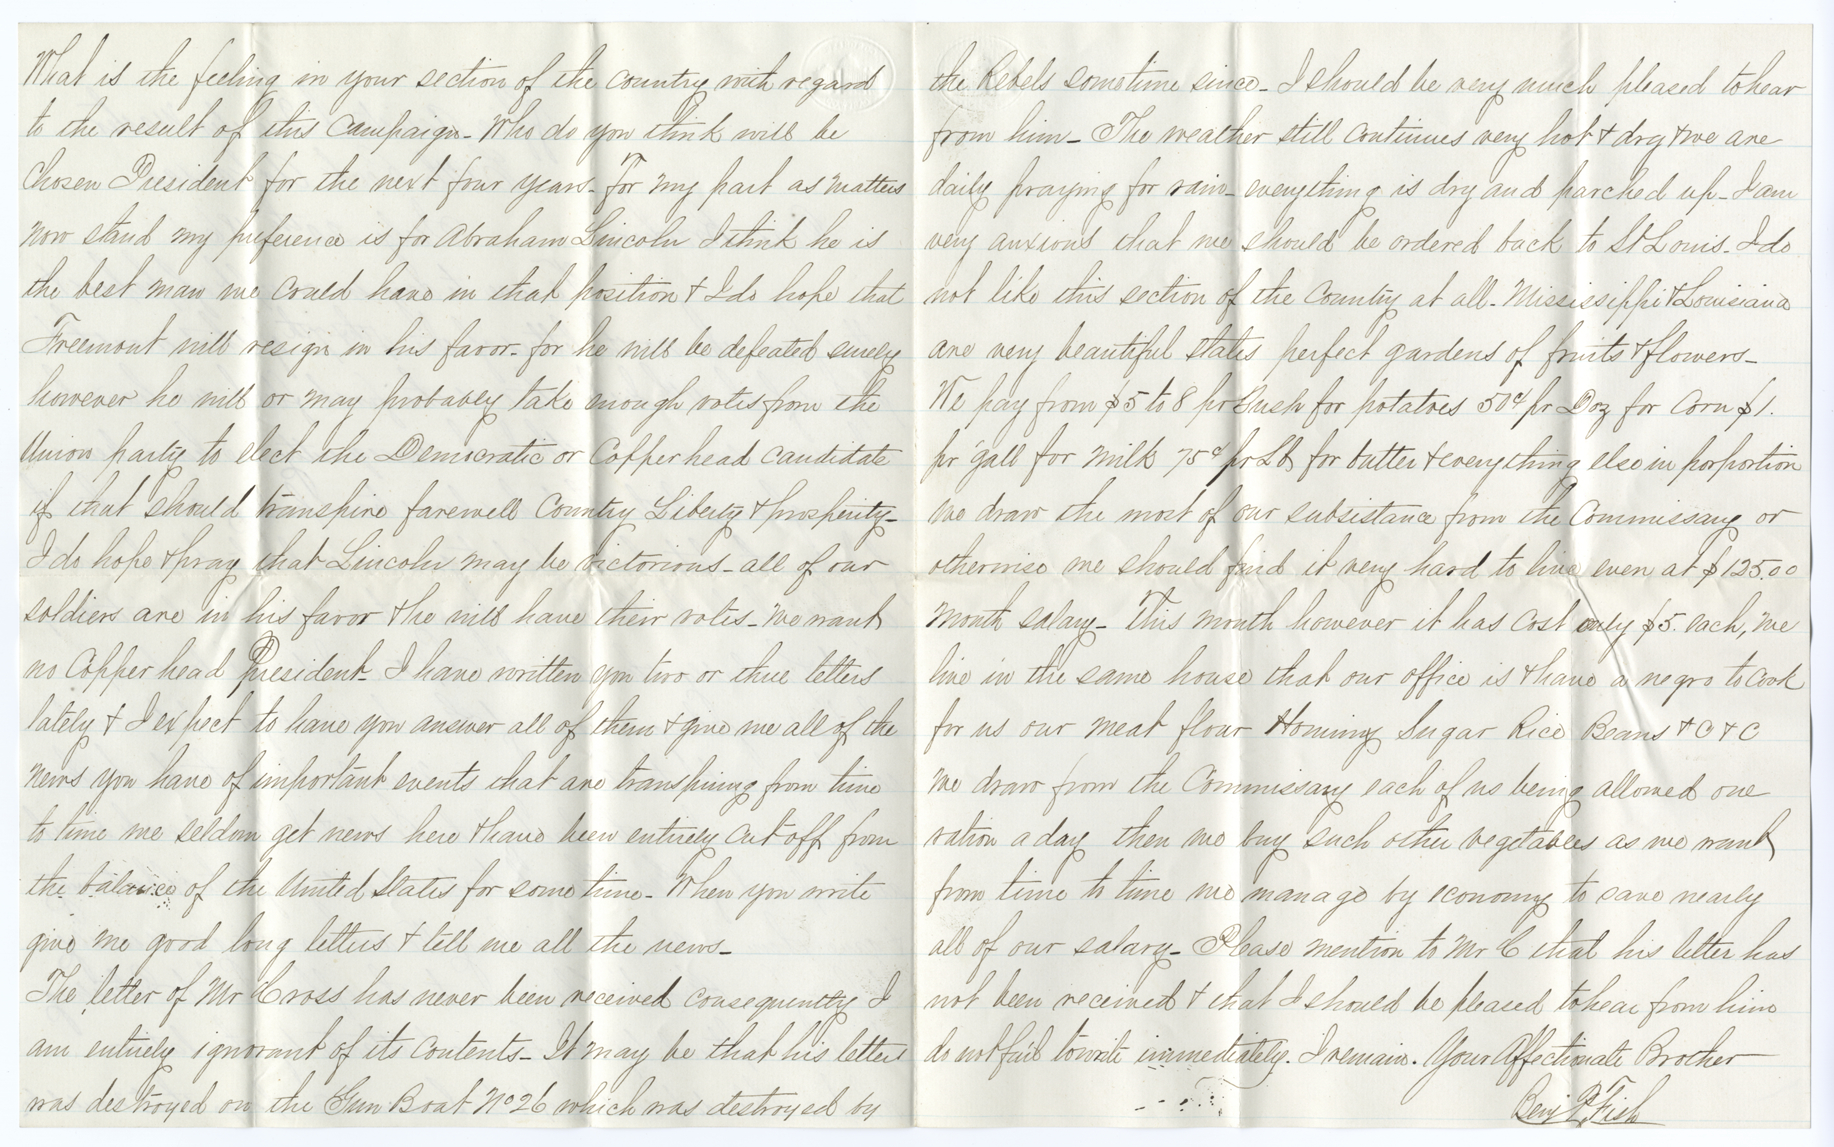 What is the feeling in your section of the country with regard
to the result of this Campaign - Who do you think will be
Chosen President for the next four years - For my part as matters
now stand my preference is for Abraham Lincoln I think he is
the best man we could have in that position & I do hope that
Freemont will resign in his favor - for he will be defeated surely
however he will or may probably take enough votes from the
Union party to elect the Democratic or Copperhead candidate
if that should transpire farewell Country Liberty & prosperity -
I do hope & pray that Lincoln may be victorious - all of our
soldiers are in his favor & he will have their votes - We want
no Copper head President - I have written you two or three letters
lately & I expect to have you answer all of them & give me all of the
news you have of important events that are transpiring from time
to time we seldom get news here & have been entirely cut off from
the balance of the United States for some time - When you write
give me good long letters & tell me all the news -
The letter of Mr Cross has never been received consequently I
am entirely ignorant of its contents - It may be that his letter
was destroyed on the Gun Boat No 26 which was destroyed by
the Rebels sometime since - I should be very much pleased to hear
from him - The weather still continues very hot & dry & we are
daily praying for rain - everything is dry and parched up - I am
very anxious that we should be ordered back to St Louis - I do
not like this section of the Country at all - Mississippi & Louisiana
are very beautiful states perfect gardens of fruits & flowers -
We pay from $5 to 8 pr Bush for potatoes 50¢ pr Doz for Corn $1.
pr gall for milk 75¢ pr Lb for butter & everything else in porportion
we draw the most of our subsistance from the Commissary or
otherwise we should find it very hard to live even at $125.00
month salary - This month however it has cost only $5. each, we
live in the same house that our office is & have a negro to cook
for us our meat flour Hominy Sugar Rice Beans & C & C
we draw from the Commissary each of us being allowed one
ration a day then we buy such other vegetables as we want
from time to time we manage by economy to save nearly
all of our salary - Please mention to Mr C that his letter has
not been received & that I should be pleased to hear from him
do not fail to write immediately. I remain. Your Affectionate Brother
Benj P. Fish